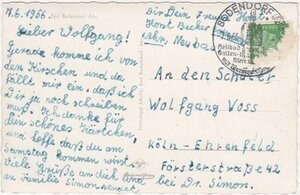 7.6.1956
Bad Bodendorf, Ahr
Lieber Wolfgang!
Gerade komme ich von
den Kirschen und da
fällt mir ein, daß ich
Dir ja noch schreiben
muß. Ich danke für
dein schönes Kärtchen,
und hoffe daß du am
Samstag kommen wirst.
Viele Grüße an dich und
an Familie Simon sendet
Dir Dein Freund
Horst Becker
BODENDORF
An den Schüler
Wolfgang Voss
Köln-Ehrenfeld
Försterstraße 42
bei Dr. Simon.